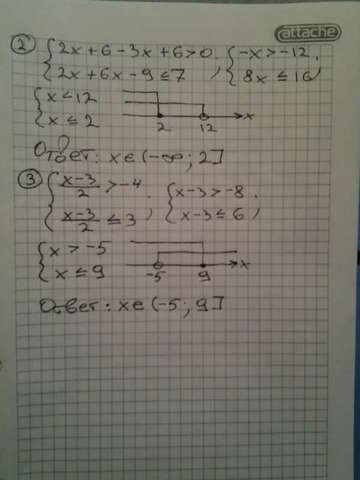 attache
2) { 2x + 6 - 3x + 6 > 0 ; { -x > -12 ;
2x + 6x - 9 ≤ 7 ; 8x ≤ 16 ;
{ x < 12
x ≤ 2
2 12 x
Ответ: x ∈ (-∞; 2]
3) { (x-3)/2 > -4 ; { x-3 > -8 ;
(x-3)/2 ≤ 3 ; x-3 ≤ 6 ;
{ x > -5
x ≤ 9
-5 9 x
Ответ: x ∈ (-5; 9]